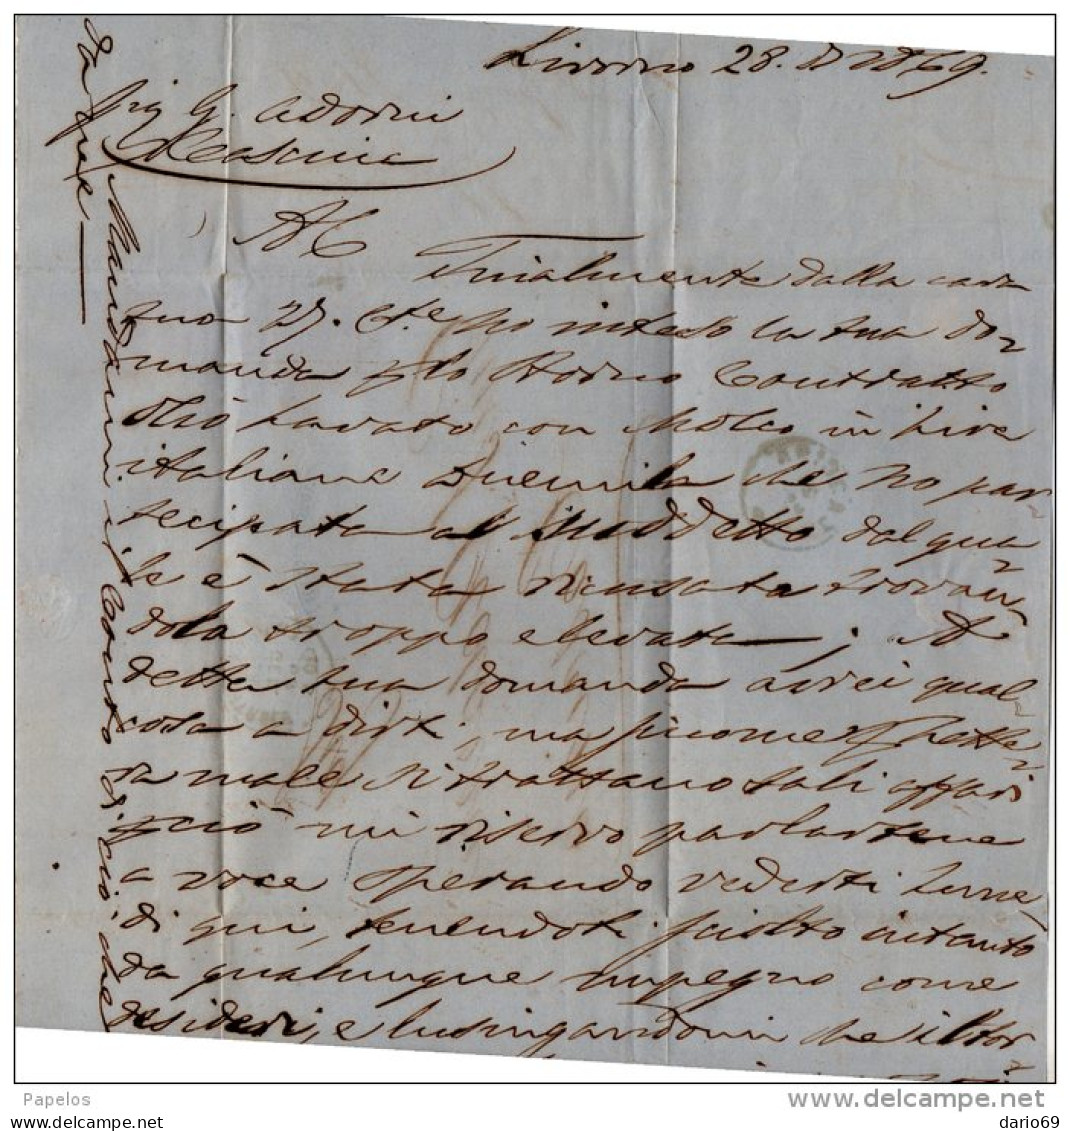 Livorno 28. 1869.
Sig G. Adorni
Cascina
AC Finalmente dalla cara
tua 27. Cte ho inteso la tua do=
manda lo Storno Contratto
Olio Lavato con Molco in Lire
italiane Duemila che ho par=
tecipata al Suddetto dal qua=
le è stata ricusata trovan=
dola troppo elevata; A
detta tua domanda avrei qual=
cosa a dirti, ma siccome lette=
ra male si trattano tali affari
perciò mi riservo parlartene
a voce sperando vederti Lune=
di qui, tenendoti sciolto intanto
da qualunque impegno come
desideri, e lusingandomi che il Stor=
Mandami il Conto di ciò che
Papelos
www.delcampe.net
dario69